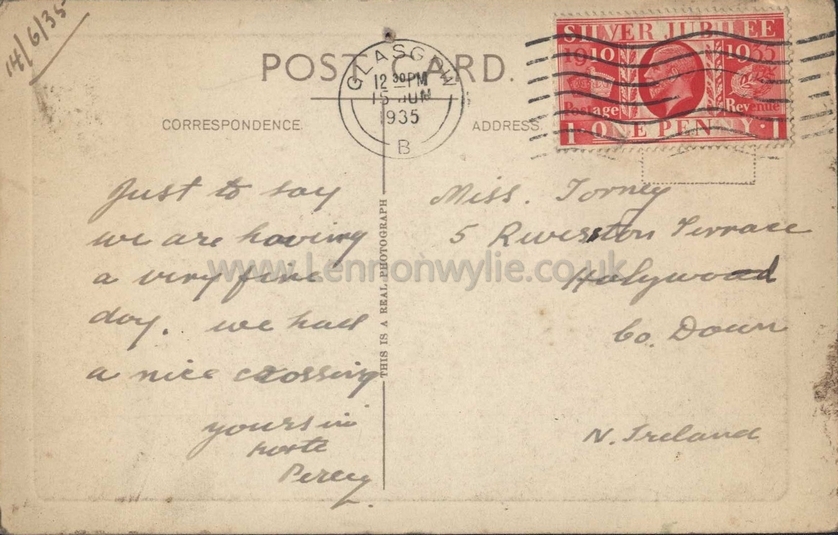 14/6/35
POST CARD.
GLASGOW
12 30 PM
15 JUN
1935
B
SILVER JUBILEE
1910 1935
Postage Revenue
1 ONE PENNY 1
CORRESPONDENCE
ADDRESS
Just to say
we are having
a very fine
day. we had
a nice crossing
yours in
haste
Percy.
THIS IS A REAL PHOTOGRAPH
Miss. Torney
5 Riverston Terrace
Holywood
Co. Down
N. Ireland
www.Lennonwylie.co.uk